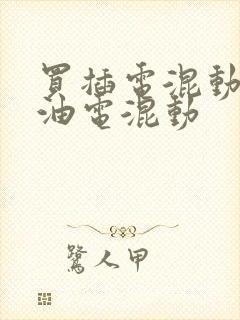 買插電混動
油電混動
鷺人甲